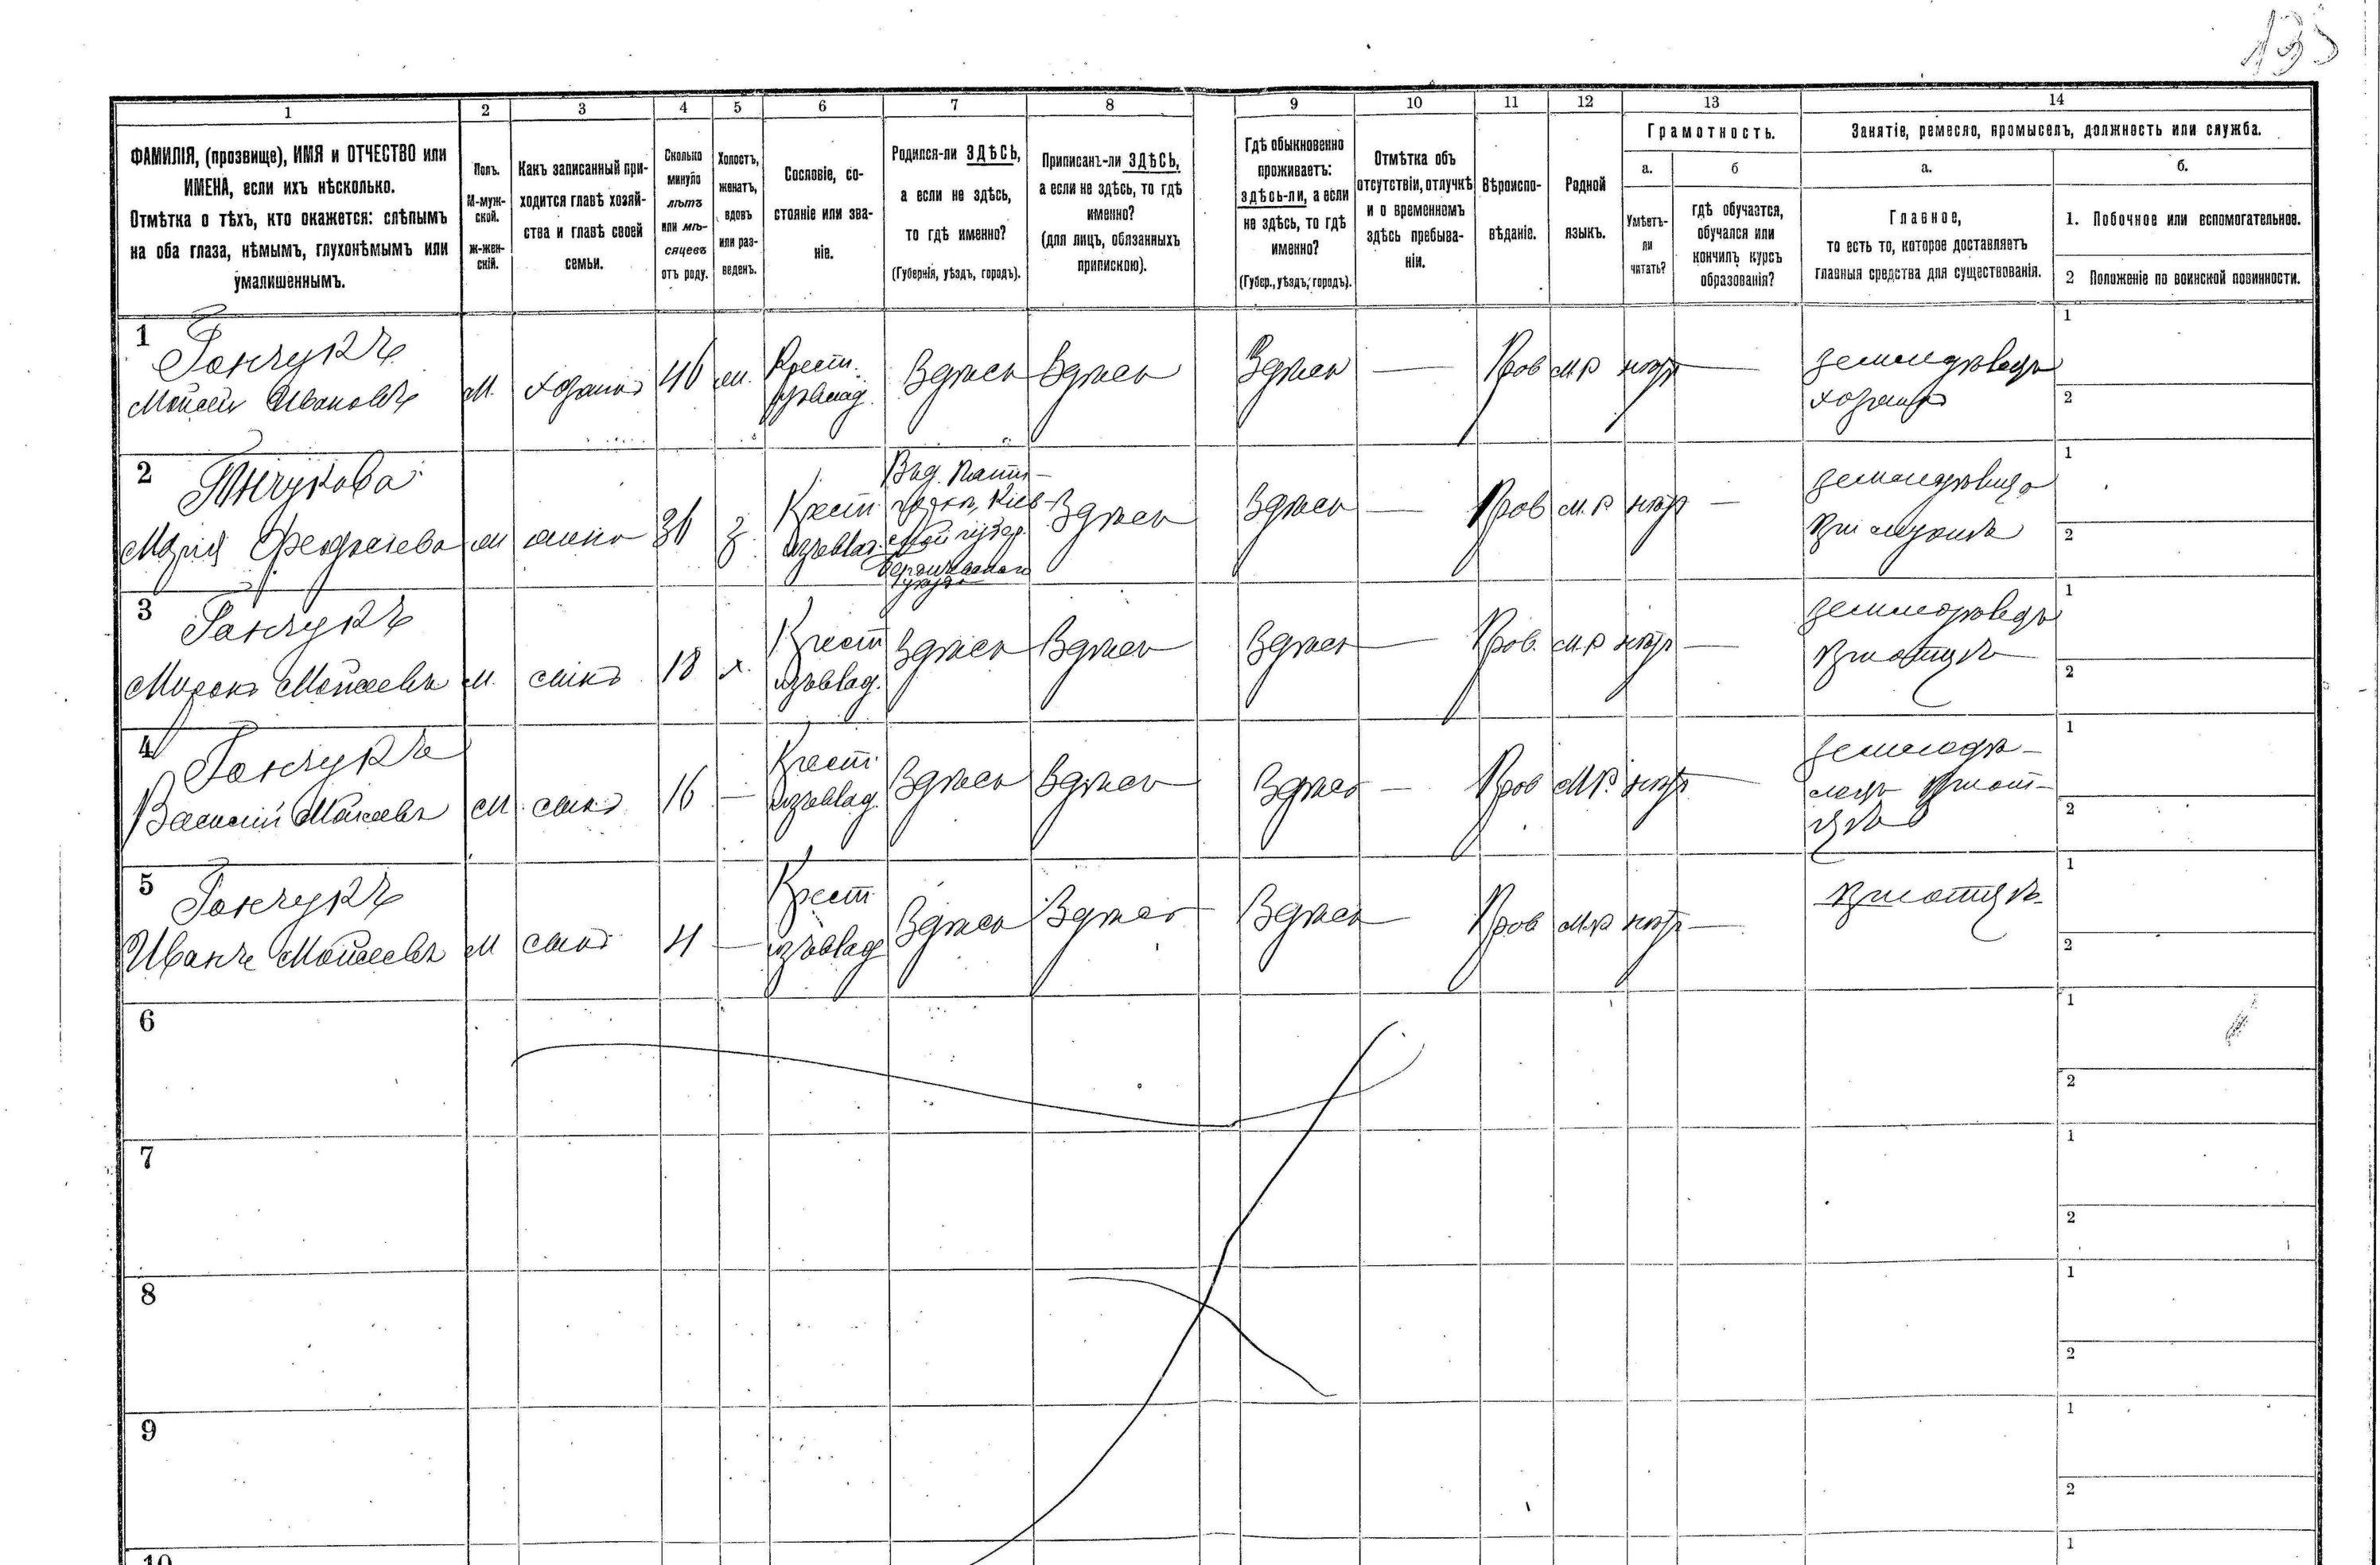 135
1 2 3 4 5 6 7 8 9 10 11 12 13 14
ФАМИЛІЯ, (прозвище), ИМЯ и ОТЧЕСТВО или
ИМЕНА, если ихъ нѣсколько.
Отмѣтка о тѣхъ, кто окажется: слѣпымъ
на оба глаза, нѣмымъ, глухонѣмымъ или
умалишеннымъ.
Полъ.
М-муж-
ской.
ж-жен-
скій.
Какъ записанный при-
ходится главѣ хозяй-
ства и главѣ своей
семьи.
Сколько
минуло
лѣтъ
или мѣ-
сяцевъ
отъ роду.
Холостъ,
женатъ,
вдовъ
или раз-
веденъ.
Сословіе, со-
стояніе или зва-
ніе.
Родился-ли ЗДѢСЬ,
а если не здѣсь,
то гдѣ именно?
(Губернія, уѣздъ, городъ).
Приписанъ-ли ЗДѢСЬ,
а если не здѣсь, то гдѣ
именно?
(для лицъ, обязанныхъ
припискою).
Гдѣ обыкновенно
проживаетъ:
здѣсь-ли, а если
не здѣсь, то гдѣ
именно?
(Губер., уѣздъ, городъ).
Отмѣтка объ
отсутствіи, отлучкѣ
и о временномъ
здѣсь пребыва-
ніи.
Вѣроиспо-
вѣданіе.
Родной
языкъ.
Грамотность.
а.
Умѣетъ-
ли
читать?
б
гдѣ обучается,
обучался или
кончилъ курсъ
образованія?
Занятіе, ремесло, промыселъ, должность или служба.
а.
Главное,
то есть то, которое доставляетъ
главныя средства для существованія.
б.
1. Побочное или вспомогательное.
2 Положеніе по воинской повинности.
1
Ганчукъ
Мойсей Ивановъ
М. хозяинъ 46
Крест.
Здѣсь Здѣсь Здѣсь — Пров М.Р нѣтъ —
земледѣлецъ
хозяинъ
1
2
2
Ганчукова
Марія
жена 36
Крест
Здѣсь Здѣсь — Пров М.Р нѣтъ —
1
2
3
Ганчукъ
Мойсеевъ
М. сынъ 18 х.
Крест
Здѣсь Здѣсь Здѣсь — Пров. М.Р нѣтъ —
земледѣлецъ
при отцѣ
1
2
4
Ганчукъ
Василий Мойсеевъ
М сынъ 16 —
Крест.
Здѣсь Здѣсь Здѣсь — Пров М.Р. нѣтъ —
земледѣ-
лецъ при от-
цѣ
1
2
5
Ганчукъ
Иванъ Мойсеевъ
М сынъ 4 —
Крест
Здѣсь Здѣсь Здѣсь — Пров М.Р нѣтъ —
при отцѣ
1
2
6
1
2
7
1
2
8
1
2
9
1
2
10
1